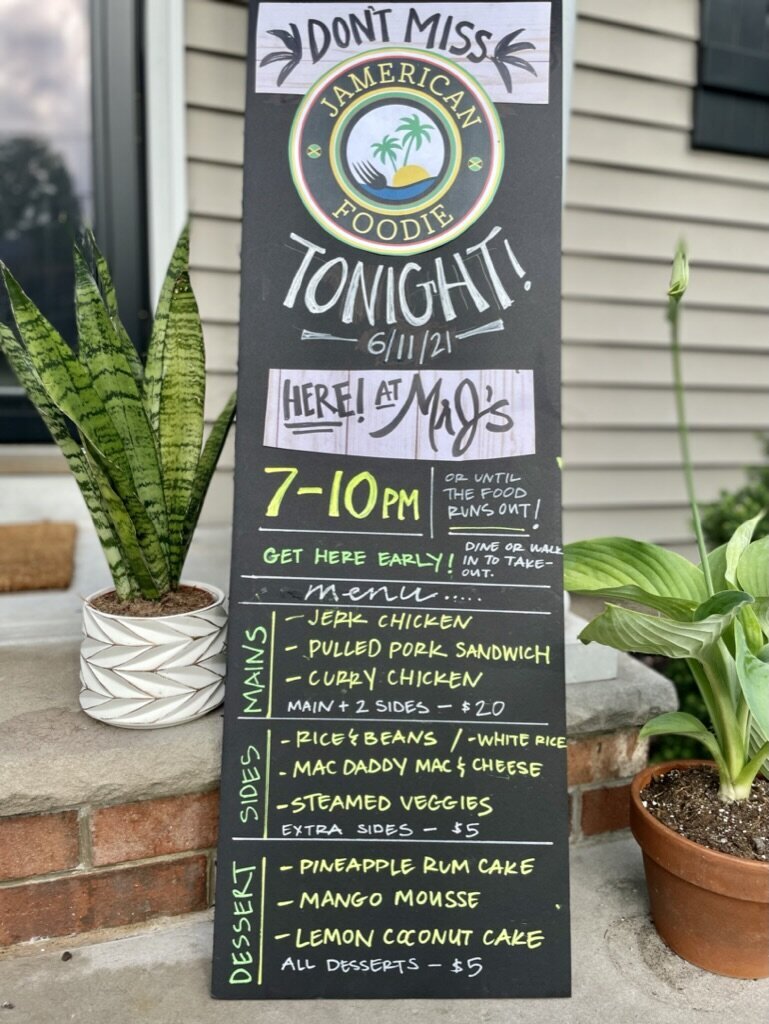 DON'T MISS
JAMERICAN
FOODIE
TONIGHT!
6/11/21
HERE! AT MR J'S
7-10PM
OR UNTIL
THE FOOD
RUNS OUT!
GET HERE EARLY!
DINE OR WALK
IN TO TAKE-
OUT.
menu.....
MAINS
- JERK CHICKEN
- PULLED PORK SANDWICH
- CURRY CHICKEN
MAIN + 2 SIDES - $20
SIDES
- RICE & BEANS / - WHITE RICE
- MAC DADDY MAC & CHEESE
- STEAMED VEGGIES
EXTRA SIDES - $5
DESSERT
- PINEAPPLE RUM CAKE
- MANGO MOUSSE
- LEMON COCONUT CAKE
ALL DESSERTS - $5